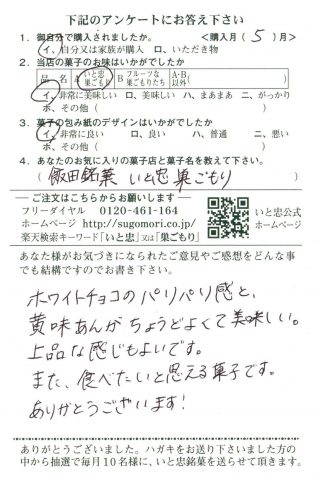 下記のアンケートにお答え下さい
1. 御自分で購入されましたか。 <購入月( 5 )月>
イ、自分又は家族が購入 ロ、いただき物
2. 当店の菓子のお味はいかがでしたか
品名 A いと忠巣ごもり B フルーツな巣ごもりたち A・B以外( )
イ、非常に美味しい ロ、美味しい ハ、まあまあ ニ、がっかり
ホ、その他( )
3. 菓子の包み紙のデザインはいかがでしたか
イ、非常に良い ロ、良い ハ、普通 ニ、悪い
ホ、その他( )
4. あなたのお気に入りの菓子店と菓子名を教えて下さい。
( 飯田銘菓 いと忠 巣ごもり )
ご注文はこちらからお願いします
フリーダイヤル 0120-461-164
ホームページ http://sugomori.co.jp/
楽天検索キーワード「いと忠」又は「巣ごもり」
いと忠公式
ホームページ
あなた様がお気づきになられたご意見やご感想をどんな事
でも結構ですのでお書き下さい。
ホワイトチョコのパリパリ感と、
黄味あんがちょうどよくて美味しい。
上品な感じもよいです。
また、食べたいと思える菓子です。
ありがとうございます!
ありがとうございました。ハガキをお送り下さいました方の
中から抽選で毎月10名様に、いと忠銘菓を送らせて頂きます。